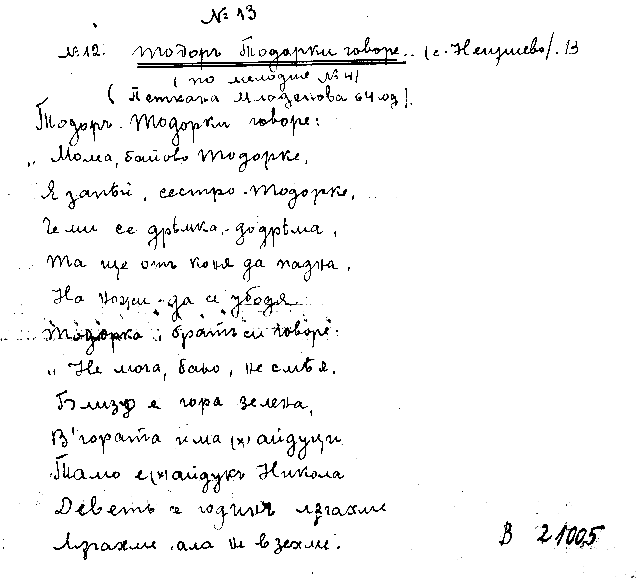 № 13
№ 12. Тодоръ Тодорки говоре. (с. Ненциево). 13
(по мелодие № 4)
(Петкана Младенова 64 год.).
Тодоръ Тодорки говоре:
„Мома, байово Тодорке,
Я запѣй, сестро Тодорке,
Че ми се дрѣмка додрѣма,
Та ще отъ коня да падна,
На ножи да се убодя
Тодорка братъ си говоре:
„Не мога, байо, не смѣя.
Близо е гора зелена,
В' гората има (х)айдуци
Тамо е (х)айдукъ Никола
Деветь години лѣгахме
Лѣгахме ала не взехме.
В 21005